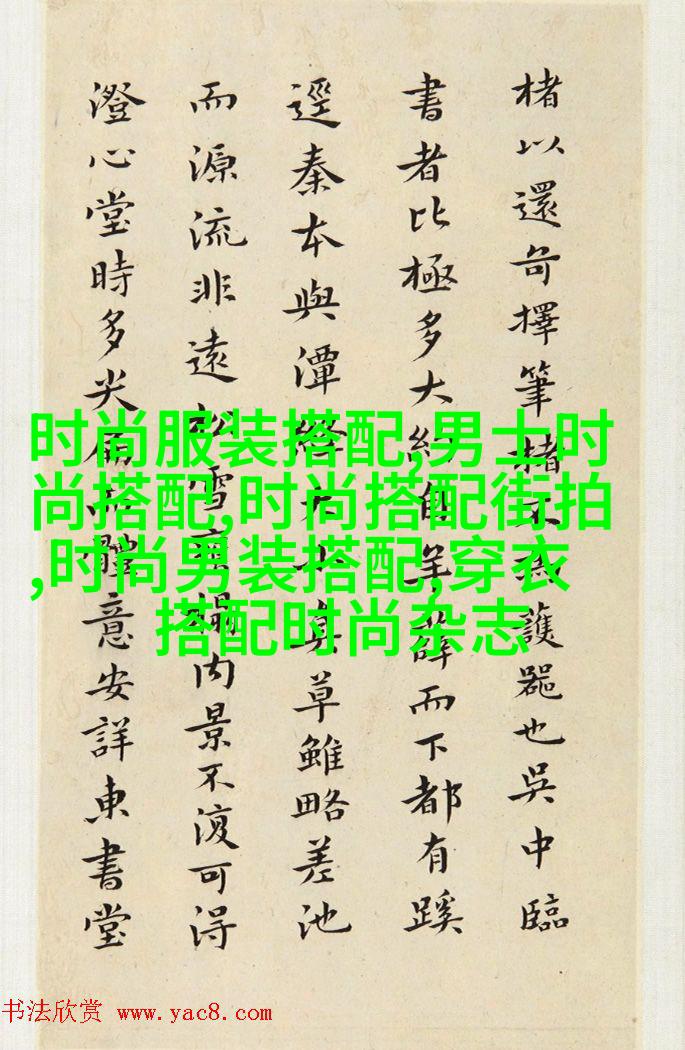 楮以還苛擇筆楮不為護器也吳中臨
書者比極多大約自羊薛而下都有蹊
逕秦本與潭絳真草雖略差池
而源流非遠松雪臨內景不復可得
澄心堂時多尖體意安詳東書堂
时尚服装搭配,男士时
尚搭配,时尚搭配街拍
,时尚男装搭配,穿衣
搭配时尚杂志
书法欣赏 www.yac8.com